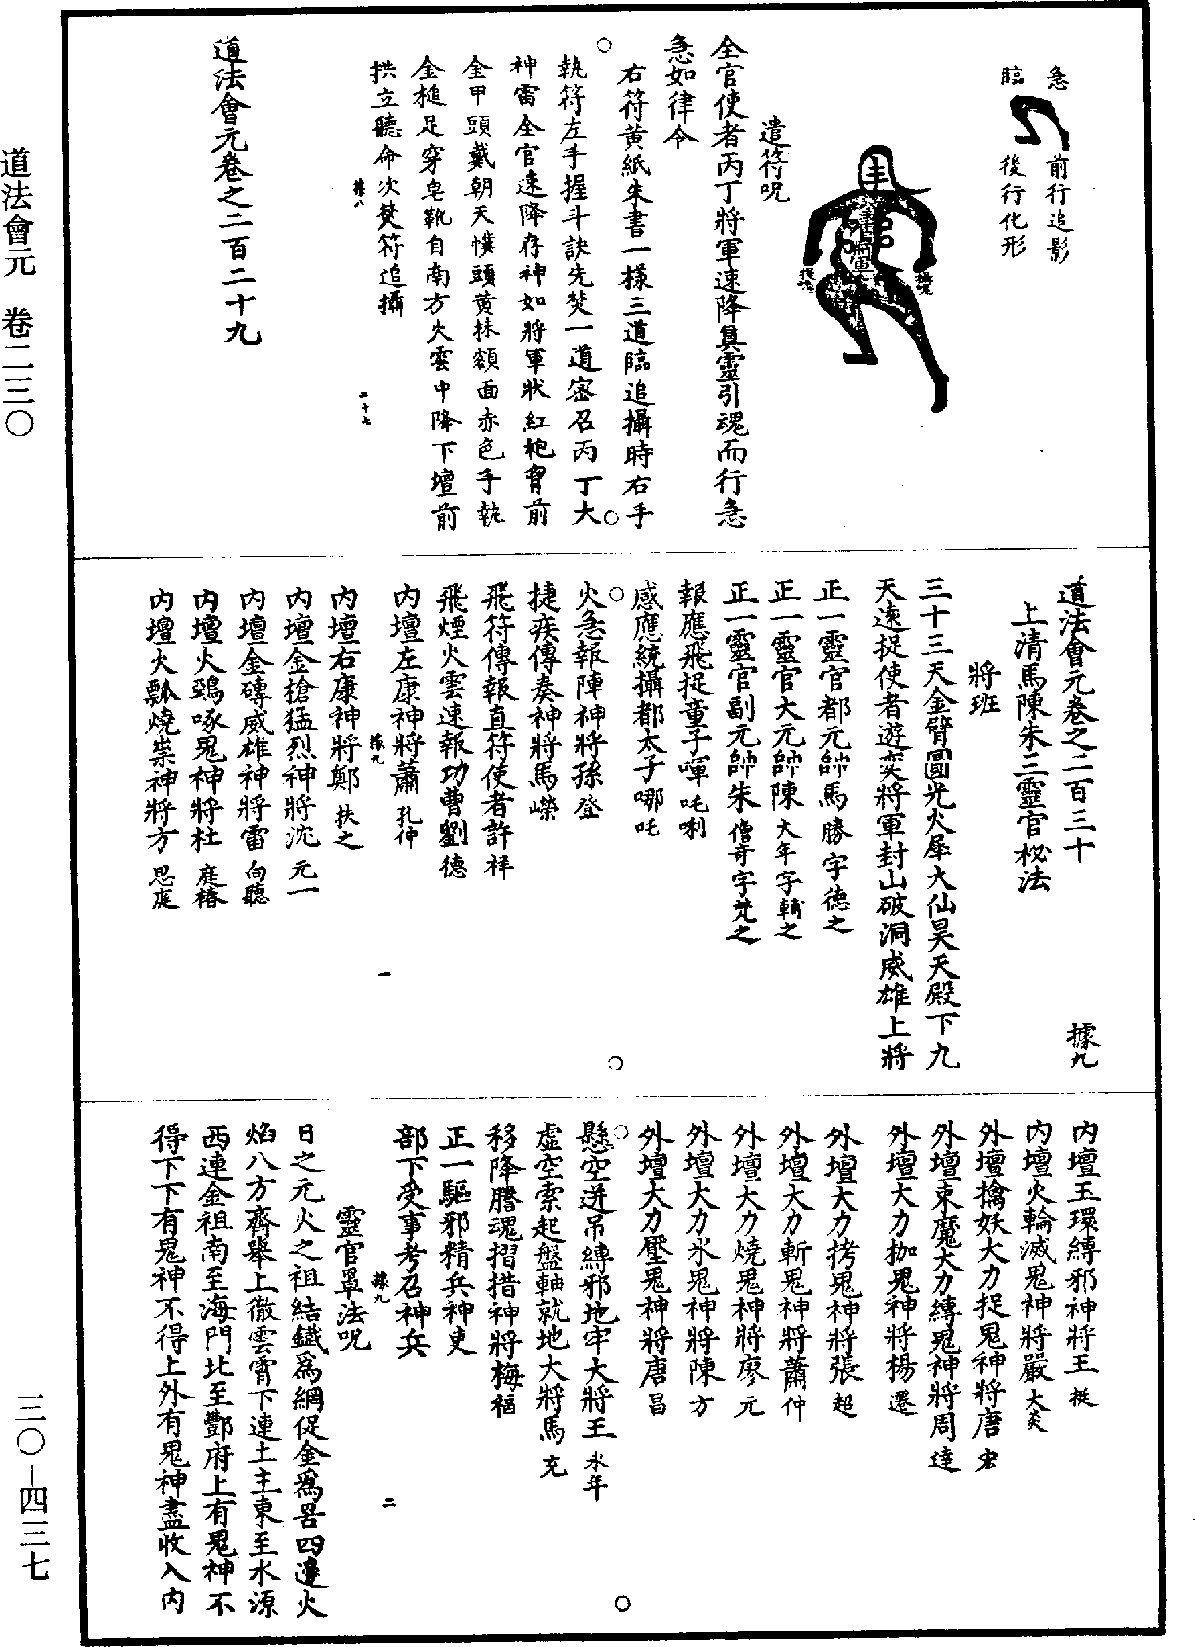 道法會元　卷二三〇
三〇－四三七
急
臨
前行追影
後行化形
遣符呪
全官使者丙丁將軍速降真靈引魂而行急
急如律令
右符黃紙朱書一樣三道臨追攝時右手
執符左手握斗訣先焚一道密召丙丁大
神雷全官速降存神如將軍狀紅袍胷前
全甲頭戴朝天幞頭黃抹額面赤色手執
金槌足穿皂靴自南方火雲中降下壇前
拱立聽命次焚符追攝
據八
二十七
道法會元卷之二百二十九
道法會元卷之二百三十
據九
上清馬陳朱三靈官秘法
將班
三十三天金臂圓光火犀大仙昊天殿下九
天速捉使者遊奕將軍封山破洞威雄上將
正一靈官都元帥馬勝字德之
正一靈官大元帥陳大年字輔之
正一靈官副元帥朱僧奇字梵之
報應飛捉童子㖆吒唎
感應統攝都太子哪吒
火急報陣神將孫登
捷疾傳奏神將馬嶸
飛符傳報直符使者許祥
飛煙火雲速報功曹劉德
內壇左康神將蕭孔仲
據九
一
內壇右康神將鄭扶之
內壇金搶猛烈神將沈元一
內壇金磚威雄神將雷向聽
內壇火鵶啄鬼神將杜庭椿
內壇火瓢燒祟神將方思庭
內壇玉環縛邪神將王挺
內壇火輪滅鬼神將嚴大炎
外壇擒妖大力捉鬼神將唐宏
外壇束魔大力縛鬼神將周達
外壇大力枷鬼神將楊遷
外壇大力拷鬼神將張超
外壇大力斬鬼神將蕭仲
外壇大力燒鬼神將廖元
外壇大力水鬼神將陳方
外壇大力壓鬼神將唐昌
懸空迸吊縛邪地牢大將王永年
虛空索起盤軸就地大將馬充
移降謄魂摺措神將梅福
正一驅邪精兵神吏
部下受事考召神兵
據九
二
靈官罩法呪
日之元火之祖結鐵為網促金為罟四邊火
焰八方齊舉上徹雲霄下連土主東至水源
西連金祖南至海門北至酆府上有鬼神不
得下下有鬼神不得上外有鬼神盡收入內